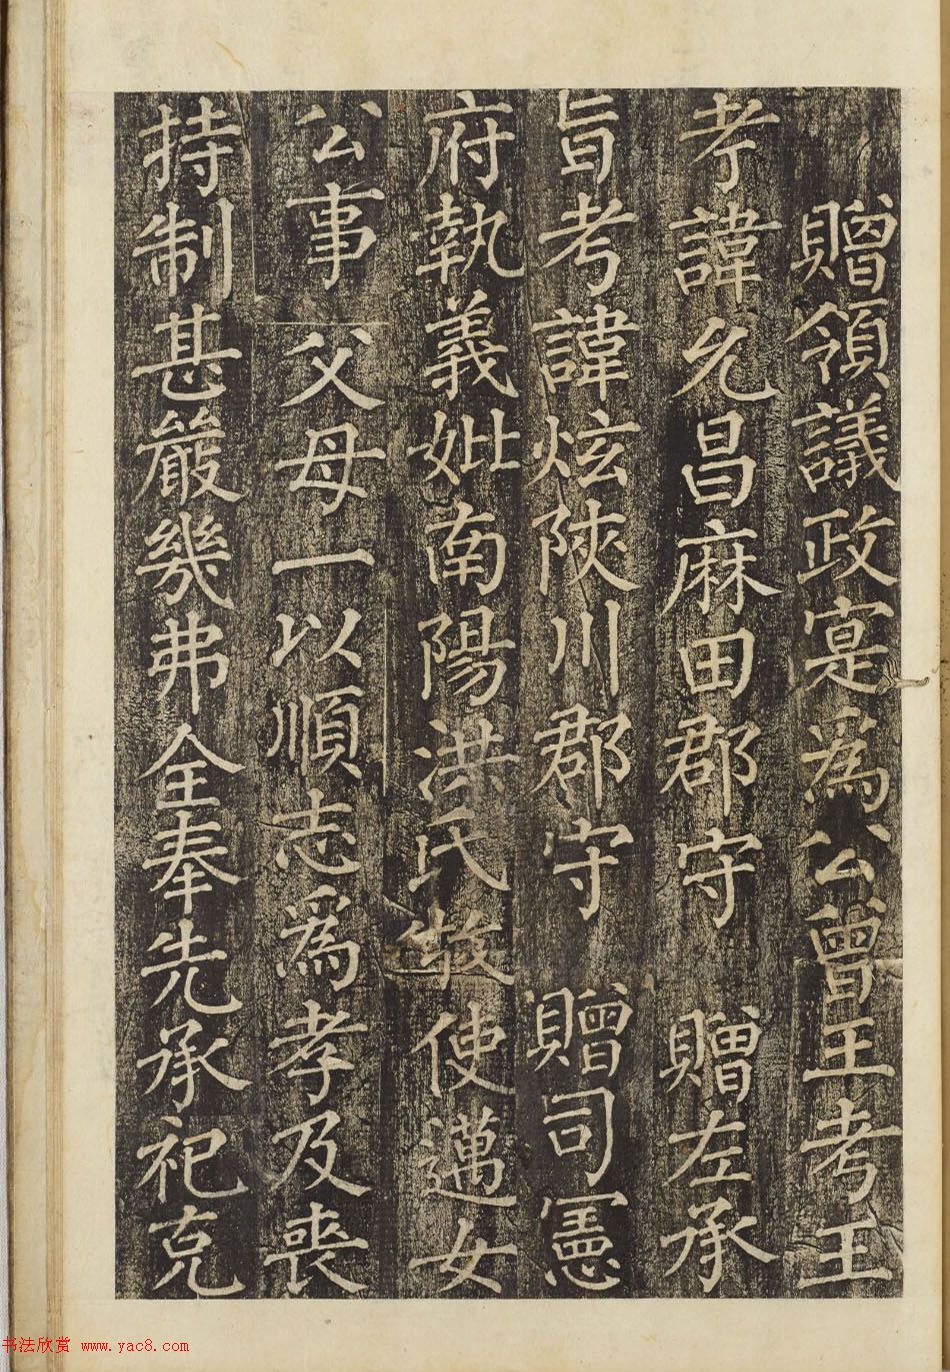 贈領議政寔為公曾王考王
考諱允昌麻田郡守 贈左承
旨考諱炫陝川郡守 贈司憲
府執義妣南陽洪氏牧使邁女
公事 父母一以順志為孝及喪
持制甚嚴幾弗全奉先承祀克
书法欣赏 www.yac8.com